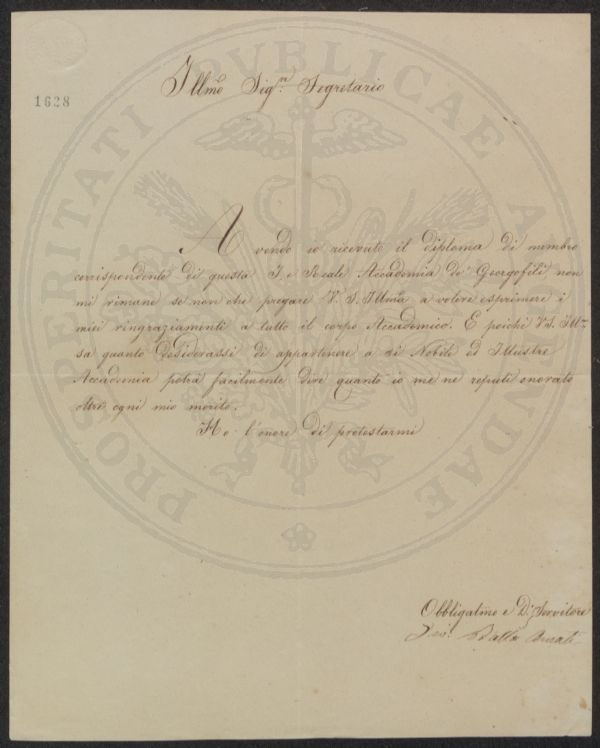 PROSPERITATI PVBLICAE AVGENDAE
1628
Illmo Sigr. Segretario
Avendo io ricevuto il diploma di membro
corrispondente di questa I. e Reale Accademia de' Georgofili non
mi rimane se non che pregare V. S. Illma a volere esprimere i
miei ringraziamenti a tutto il corpo Accademico. E poichè V.S. Illma
sa quanto desiderassi di appartenere a sì Nobile ed Illustre
Accademia potrà facilmente dire quanto io me ne reputi onorato
oltre ogni mio merito.
Ho l'onore di protestarmi
Obbligatmo e D. Servitore
Dalla